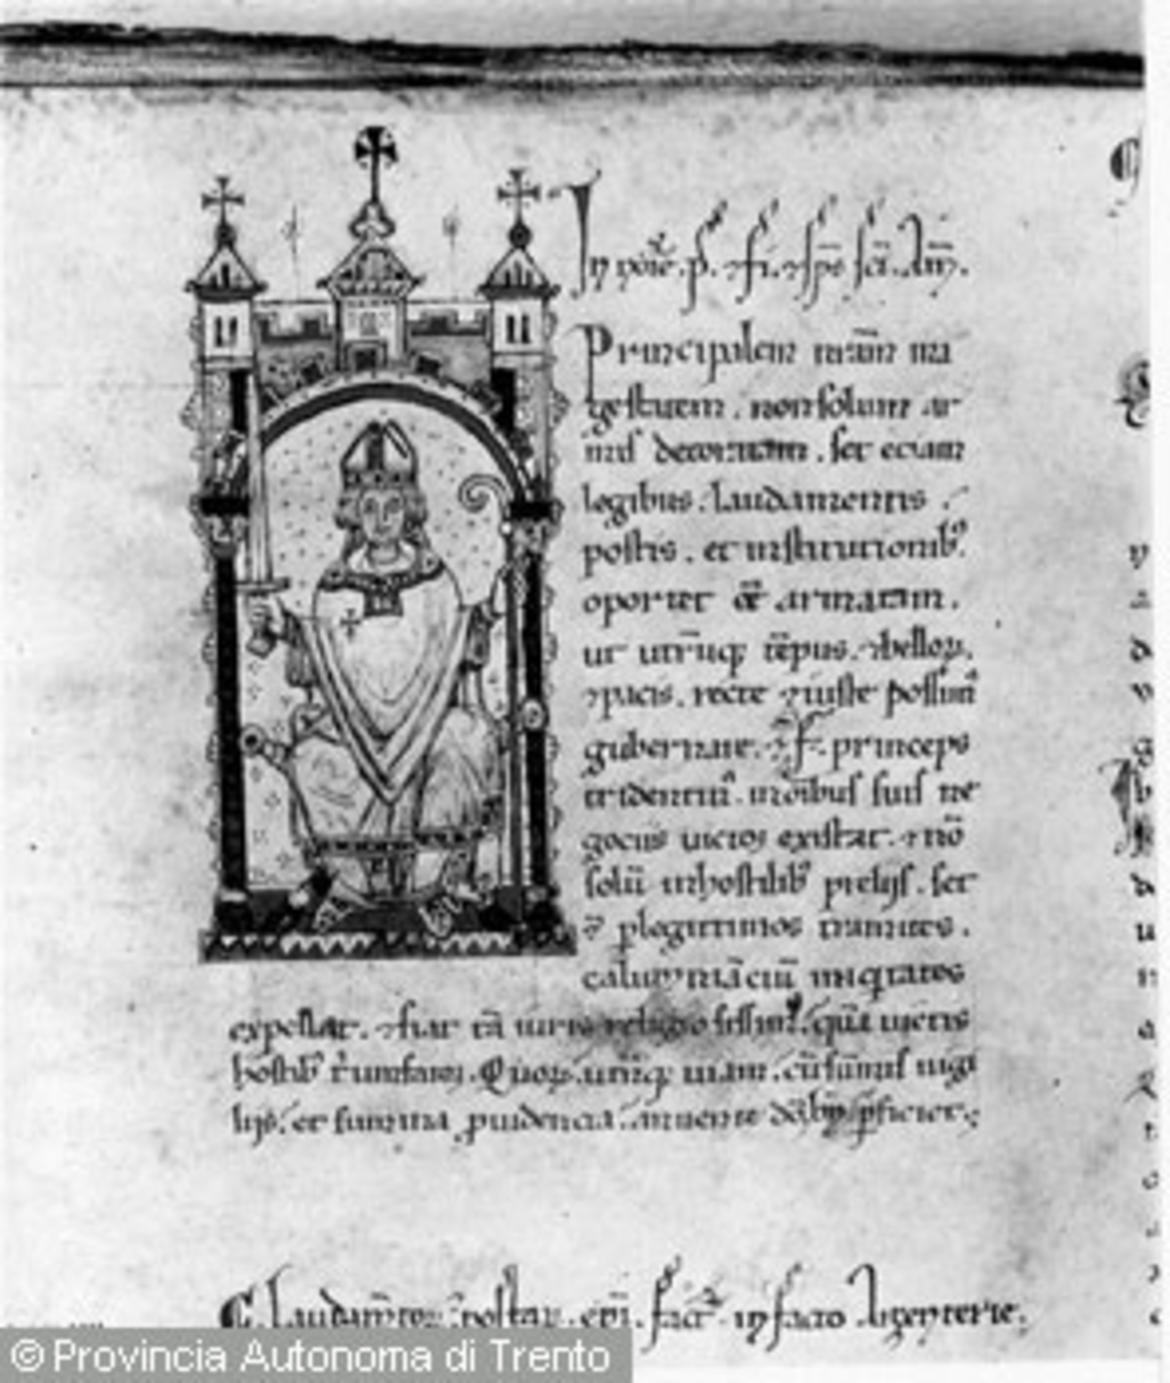 In noīe . p̄ . ⁊ fi . ⁊ sps̄ scī . Am̄ .
Principalem nrām ma
gestatem . non solum ar
mis decoratam . set eciam
legibus . laudamentis
postis . et institutionibꝰ
oportet eē armatam .
ut utrūq; tēpus . ⁊ belloꝝ .
⁊ pacis . recte ⁊ iuste possim
gubernare . princeps
tridentin᾽ . in oībus suis ne
gociis uictor existat . ⁊ nō
solū in hostilibꝰ prelijs . set
⁊ ꝑ legittimos tramites .
calūpniāciū iniq̄tates
expellat . ⁊ fiat tā iuris religiosissim᾽ . quā uictis
hostibꝰ t̄umfator . Quoꝝ . utrūq; uiam . cū sūmis uigi
lijs . et summa prudencia . annuente deo ꝑficiet .
laudam̄toꝝ postaꝝ . epī . fact᾽ in facto Argenterie .
© Provincia Autonoma di Trento